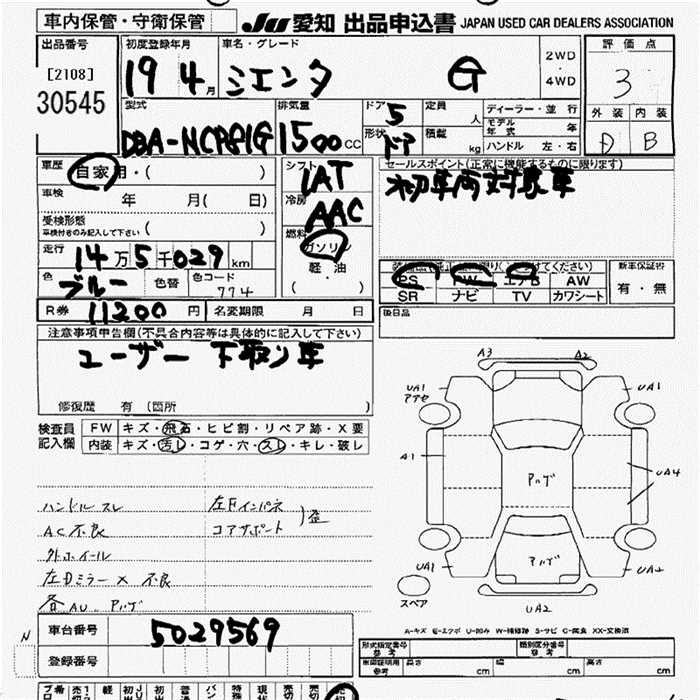 車内保管・守衛保管 JU 愛知 出品申込書 JAPAN USED CAR DEALERS ASSOCIATION
出品番号 初度登録年月 車名・グレード 2WD・4WD 評価点
[2108] 19 4月 シエンタ G 3
30545 外装 内装
型式 排気量 ドア 5 定員 人 ディーラー・並行
DBA-NCP81G 1500cc 形状 ドア 積載 kg モデル年式 年
ハンドル 左・右 D B
車歴 自家用・( ) シフト IAT セールスポイント(正常に機能するものに限ります)
車検 年 月( 日) 冷房 AAC 初車両対象車
受検形態 車検付きのみ記入して下さい ( ) 燃料 ガソリン
走行 14万5千029km 軽・油
色 ブルー 色替 色コード 774 ( ・ )
PS PW エアB AW 新車保証書
SR ナビ TV カワシート 有・無
R券 11200円 名変期限 月 日 後日品
注意事項申告欄(不具合内容等は具体的に記入して下さい)
ユーザー下取り車
修復歴 有 (箇所 )
検査員記入欄 FW キズ・飛石・ヒビ割・リペア跡・X要
内装 キズ・汚し・コゲ・穴・スレ・キレ・破レ
ハンドルスレ 左Fインパネ
AC不良 コアサポート 歪
外ホイール
左Dミラー × 不良
各AU、Pハゲ
車台番号 5029569
登録番号
N
A3 A2
UA1 アアセ UA1
A1 Pハゲ UA4
UA1 Pハゲ UA2
スペア UA2
A-キズ E-エクボ U-凹み W-補修跡 S-サビ C-腐食 XX-交換済
形式指定番号 参考 類別区分番号 参考
車庫証明用 参考 長さ cm 幅 cm 高さ cm